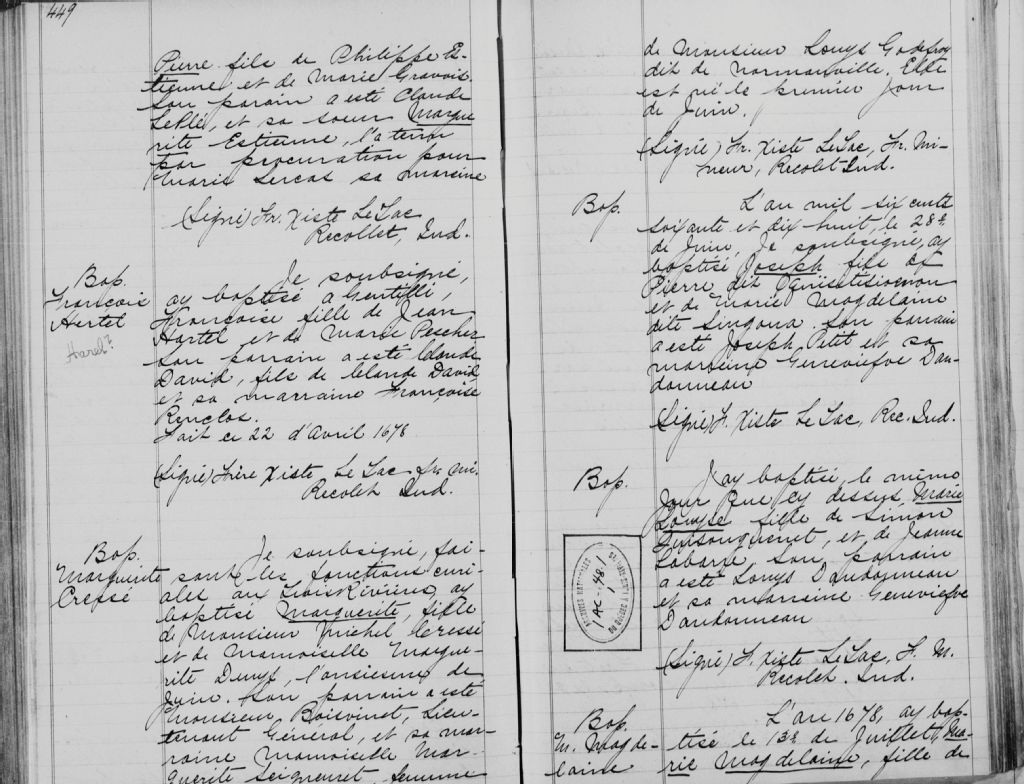 449
Pierre fils de Philippe Es-
tienne et de Marie Gravois
son parain a esté Claude
LePlé, et sa soeur Margue
rite Estienne, l'a tenu
par procuration pour
Marie Lercas sa mareine
(Signé) Fr. Xiste LeTac
Recollet, Ind.
Bap.
Françoise
Hertel
Harel?
Je soubsigné,
ay baptisé a Gentilli,
Françoise fille de Jean
Hartel et de Marie Pescher
Son parrain a esté Claude
David, fils de Claude David
et sa marraine Françoise
Renclos.
Fait ce 22 d'Avril 1678
(Signé) Frère Xiste Le Tac fr. Mi.
Recolet Ind.
Bap.
Marguerite
Cressé
Je soubsigné, fai-
sant les fonctions curi-
ales au Trois Rivières, ay
baptisé Marguerite, fille
de Monsieur Michel Cressé
et de Mamoiselle Margue-
rite Denys, l'onsiesme de
Juin. Son parrain a esté
Monsieur Boisvinet, Lieu-
tenant Général, et sa mar-
raine Mamoiselle Mar-
guerite Seigneuret femme
de Monsieur Louys Godefroy
dit de Normanville. Elle
est née le premier jour
de Juin.
(Signé) Fr. Xiste LeTac, Fr. Mi-
neur, Recolet Ind.
Bap.
L'an mil six cents
soixante et dix huit, le 28e
de Juin, Je soubsigné, ay
baptisé Joseph fils de
Pierre dit
et de Marie Magdelaine
dite Singoua. Son parrain
a esté Joseph Petit et sa
maraine Geneviefve Dan-
donneau
(Signé) F. Xiste Le Tac, Rec. Ind.
Bap.
J'ay baptisé, le mime
Jour que cy dessus, Marie
Louyse fille de Simon
et de Jeanne
Labarre, Son parrain
a esté Louys Dandonneau
et sa maraine Geneviefve
Dandonneau
1AC-481
(Signé) F. Xiste LeTac, F. M.
Recolet. Ind.
Bap.
M. Magde-
laine
L'an 1678, ay bap-
tisé le 13e de Juillet, Ma-
rie Magdelaine, fille de